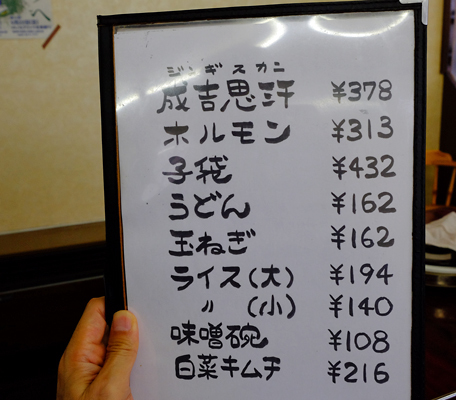 ジンギスカン
成吉思汗 ¥378
ホルモン ¥313
子袋 ¥432
うどん ¥162
玉ねぎ ¥162
ライス(大) ¥194
〃 (小) ¥140
味噌碗 ¥108
白菜キムチ ¥216